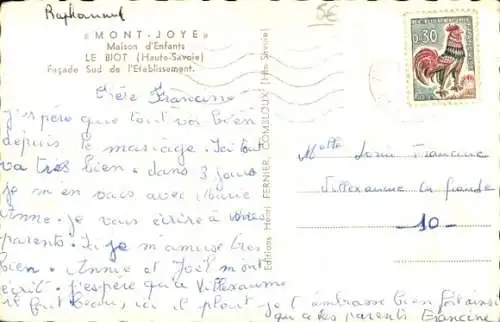 « MONT-JOYE »
Maison d'Enfants
LE BIOT (Haute-Savoie)
Façade Sud de l'Etablissement.
5€
0,30
Editions Henri FERNIER, COMBLOUX (Hte-Savoie)
Francine
J'espère que tout va bien
depuis le mariage. Ici tout
va très bien. dans 3 jours
je m'en vais avec Marie
Anne. je vous écrire à
parents. Ici je m'amuse très
bien. Annie et Joël m'ont
écrit. j'espère qu'à Villexanne
il fait beau, ici il pleut je t'embrasse bien
que tes parents Francine
Melle Francine
Villexanne la grande
-10-